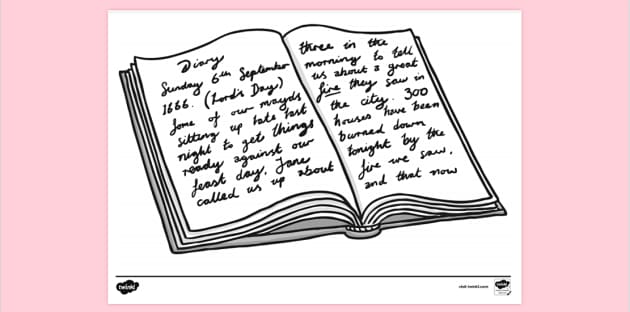 Diary
Sunday 6th September
1666. (Lord's Day)
Some of our mayds
sitting up late last
night to get things
ready against our
feast day, Jane
called us up about
three in the
morning to tell
us about a great
fire they saw in
the city. 300
houses have been
burned down
tonight by the
fire we saw,
and that now
twinkl
visit twinkl.com
twinkl